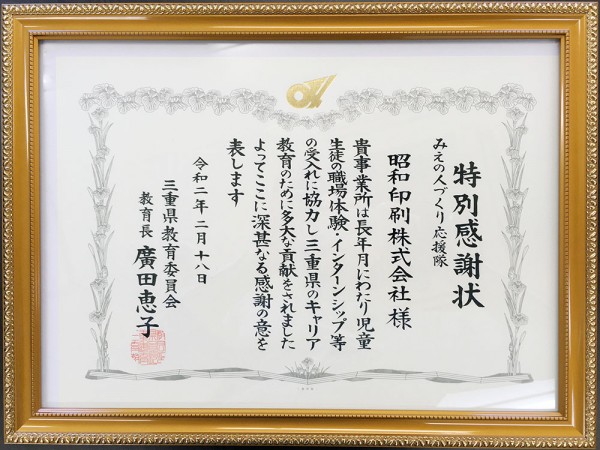 特別感謝状
みえの人づくり応援隊
昭和印刷株式会社様
貴事業所は長年月にわたり児童
生徒の職場体験・インターンシップ等
の受入れに協力し三重県のキャリア
教育のために多大な貢献をされました
よってここに深甚なる感謝の意を
表します
令和二年二月十八日
三重県教育委員会
教育長 廣田恵子